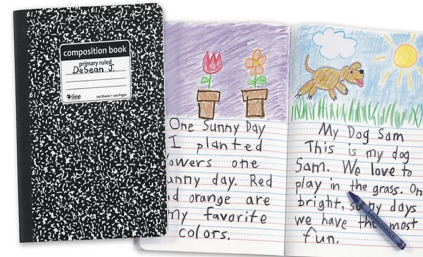 composition book
primary ruled
DeSean J.
One Sunny Day
I planted
owers one
unny day. Red
d orange are
my favorite
colors.
My Dog Sam
This is my dog
Sam. We love to
play in the grass. On
bright, su ny days
we have the most
fun.